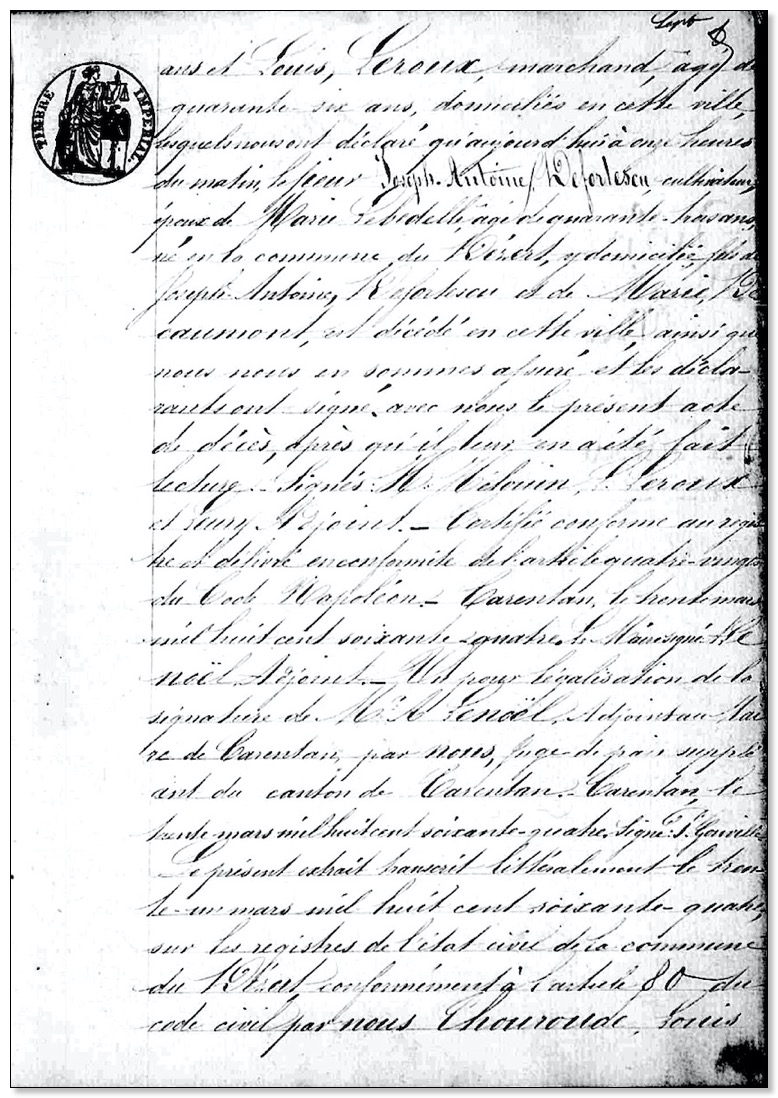 Sept
TIMBRE IMPERIAL
ans et Louis, Leroux, marchand, âgé de
quarante six ans, domiciliés en cette ville,
lesquels nous ont déclaré qu'aujourd'hui à onze heures
du matin, le sieur Joseph-Antoine, Defortescu cultivateur,
époux de Marie Lebedelle, âgé de quarante-trois ans,
né en la commune, du Dézert, y domicilié, fils de
Joseph Antoine, Defortescu et de Marie, De
caumont, est décédé en cette ville, ainsi que
nous nous en sommes assuré et les décla-
rants ont signé, avec nous le présent acte
de décès, après qu'il leur en a été fait
lecture. Signés: L. Leroux
et Adjoint. — Certifié conforme au regis
tre et délivré en conformité de l'article quatre-vingt
du Code Napoléon. — Carentan, le trente mars
mil huit cent soixante-quatre. Le Maire signé Le
noël, Adjoint. — Vu pour légalisation de la
signature de Mr. A. Lenoël, Adjoint au Mai
re de Carentan, par nous, juge de paix supplé
ant du canton de Carentan. — Carentan, le
trente mars mil huit cent soixante-quatre. Signé:
Le présent extrait transcrit littéralement le tren
te-un mars mil huit cent soixante-quatre,
sur les registres de l'état civil de la commune
du Dézert conformément à l'article 80 du
code civil par nous Thouroude, Louis